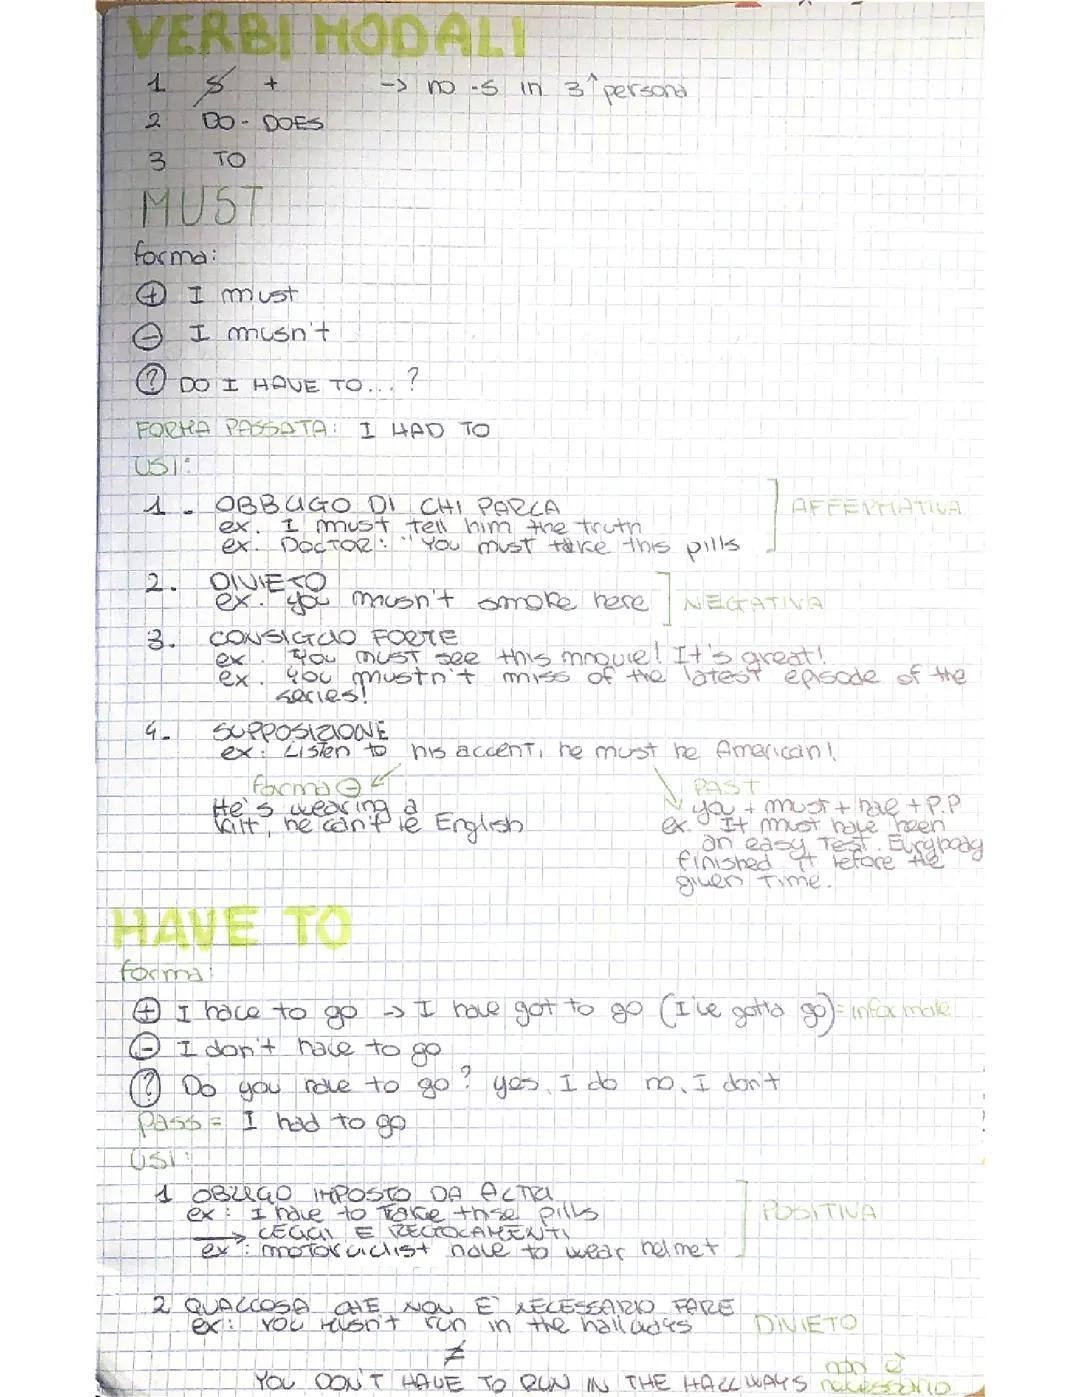 VERBI MODALI
1 S + -> no -s in 3^ persona
2 DO - DOES
3 TO
MUST
forma:
+ I must
- I musn't
? DO I HAVE TO...?
FORMA PASSATA: I HAD TO
USI:
1. OBBLIGO DI CHI PARLA
ex. I must tell him the truth
ex. DOCTOR: "You must take this pills
AFFERMATIVA
2. DIVIETO
ex. you musn't smoke here
NEGATIVA
3. CONSIGLIO FORTE
ex. You must see this movie! It's great!
ex. You mustn't miss of the latest episode of the
series!
4. SUPPOSIZIONE
ex: Listen to his accent, he must be American!
forma -
He's wearing a
kilt, he can't be English
PAST
you + must + have + P.P
ex. It must have been
an easy test. Everybody
finished it before the
given time.
HAVE TO
forma:
+ I have to go -> I have got to go (I've gotta go) = informale
- I don't have to go
? Do you have to go? yes, I do no, I don't
pass = I had to go
USI:
1 OBBLIGO IMPOSTO DA ALTRI
ex: I have to take these pills
-> LEGGI E REGOLAMENTI
ex: motorciclist have to wear helmet
POSITIVA
2 QUALCOSA CHE NON E' NECESSARIO FARE
ex: YOU musn't run in the hallways DIVIETO
≠
YOU DON'T HAVE TO RUN IN THE HALLWAYS non è necessario